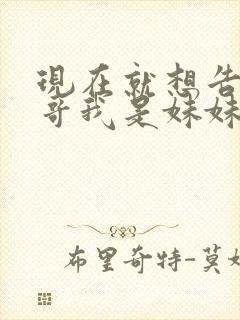 現在就想告
哥我是妹妹
布里奇特-莫